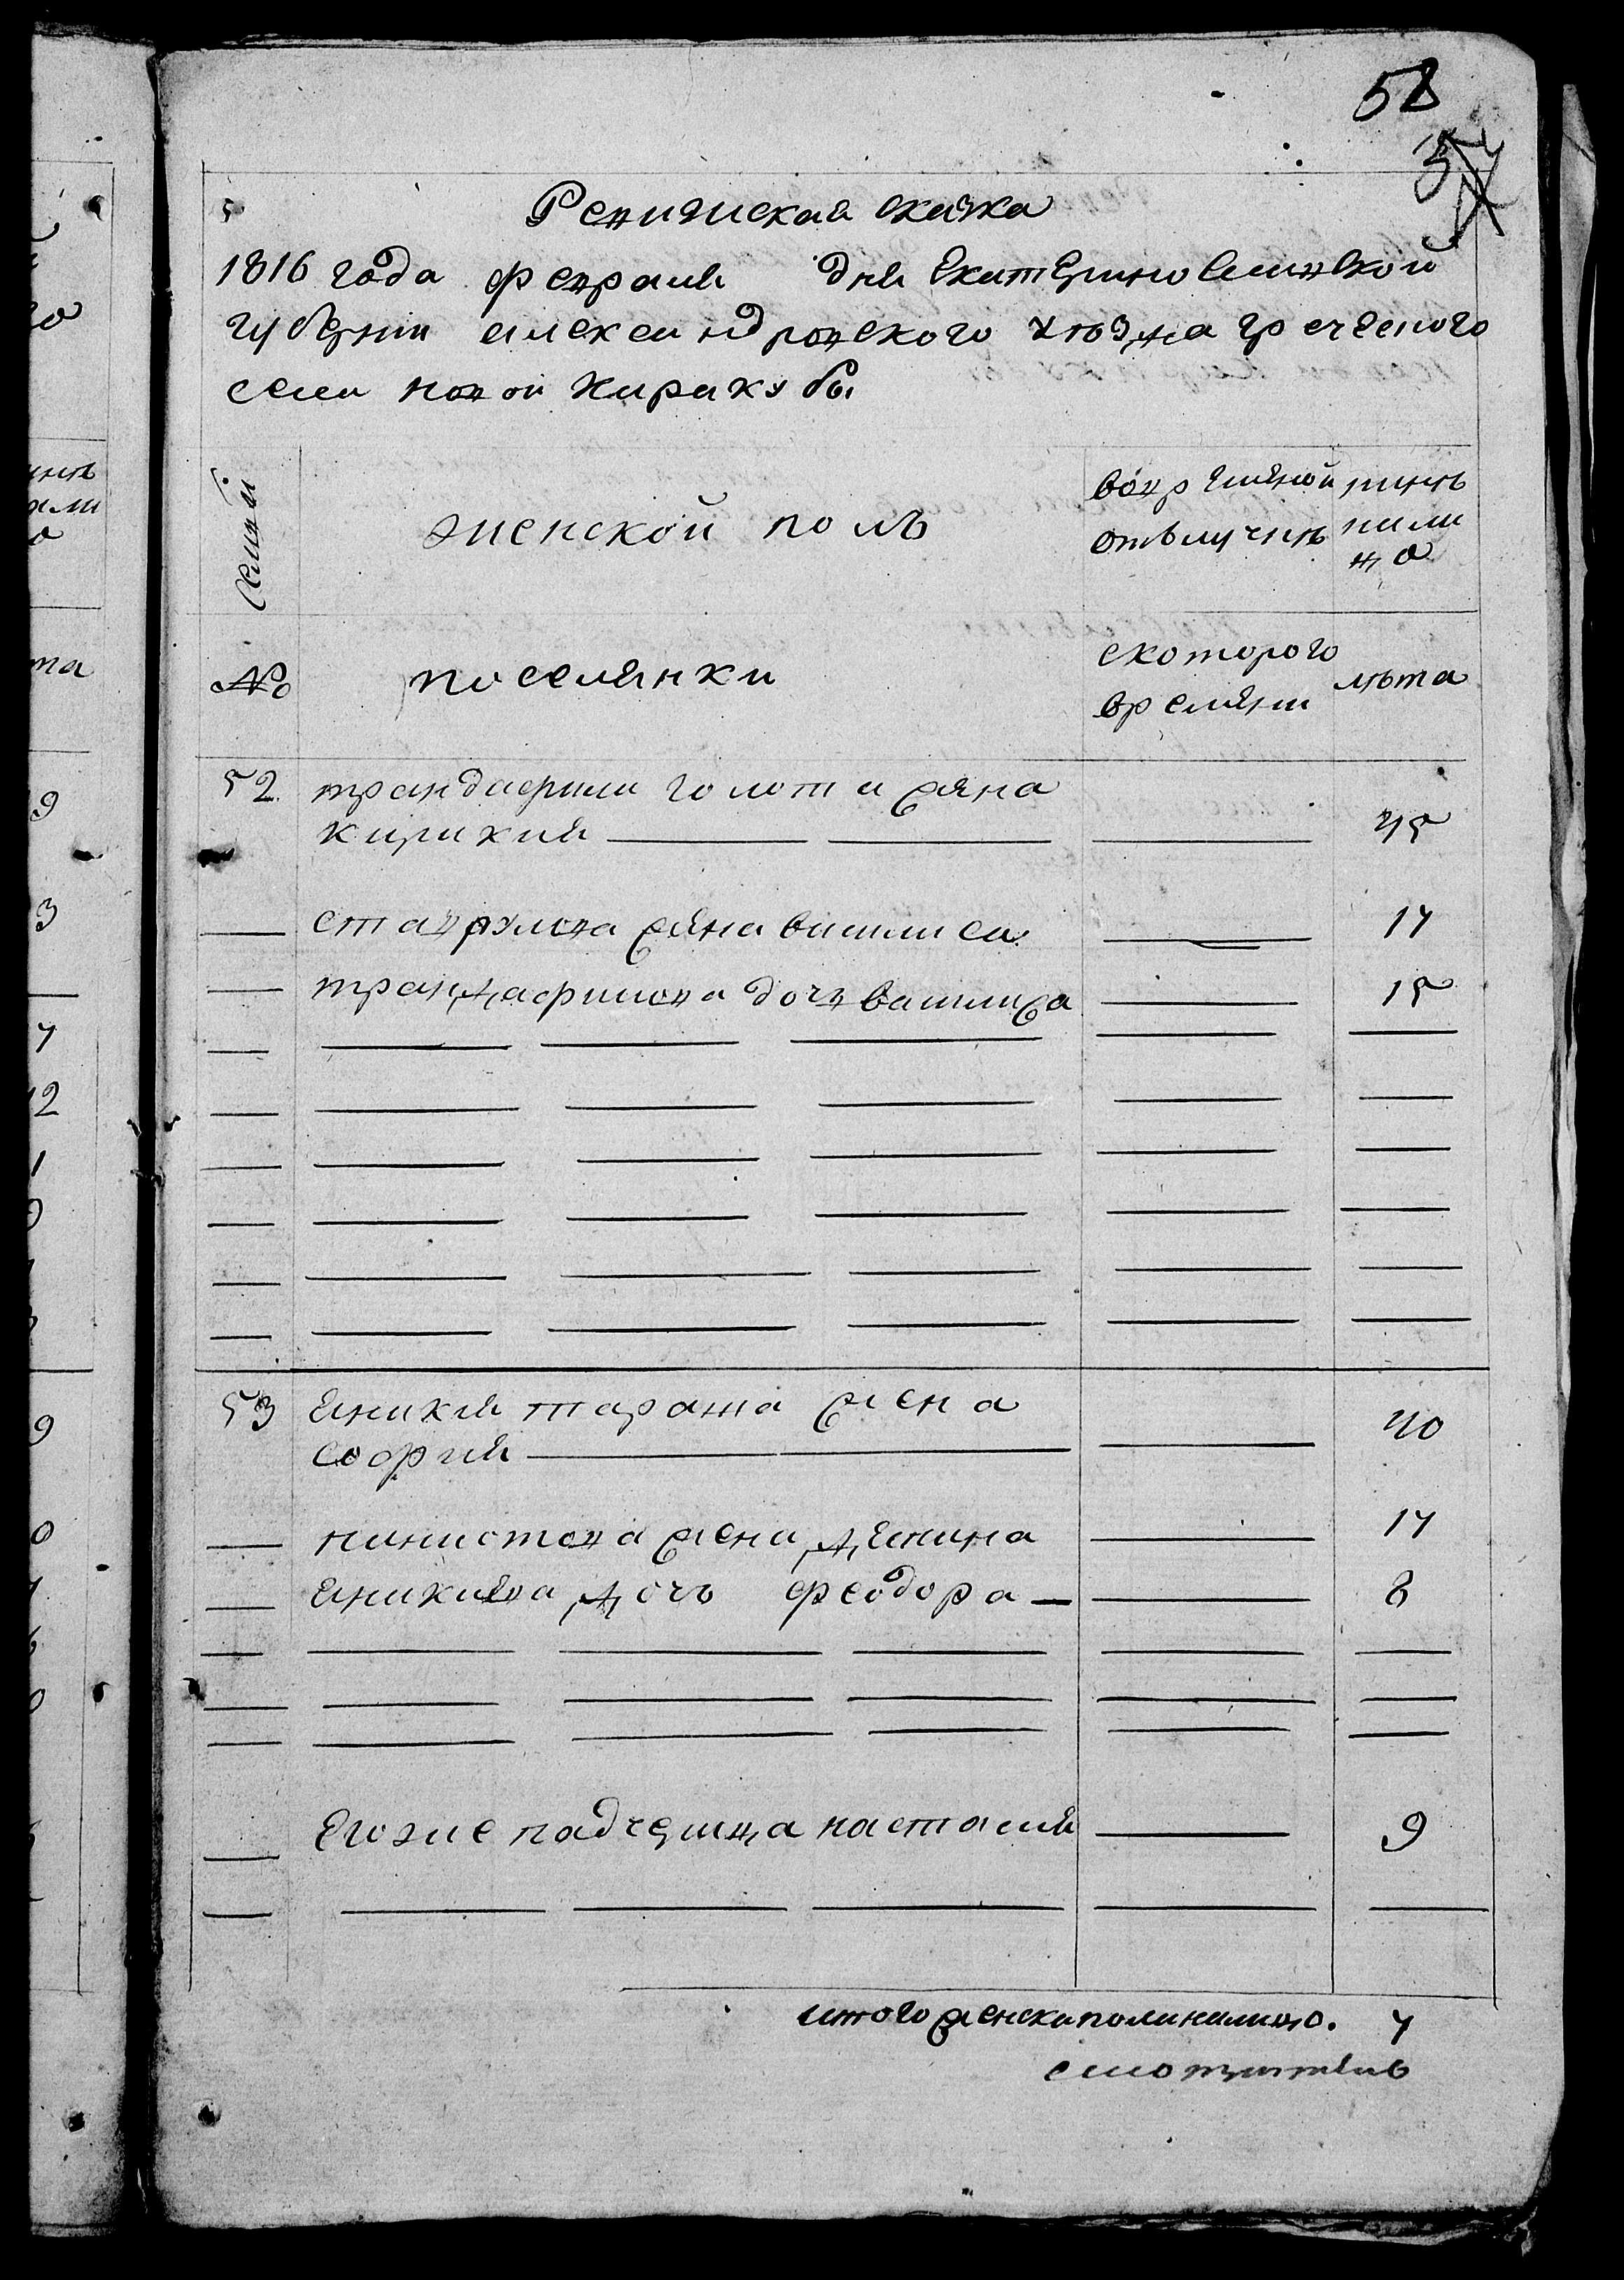 58
57
Ревижская скаска
1816 года февраля дня Екатеринославской
губернии александровского уѣзда греческого
села новой Каракубы
Семьи
женской полъ
во времѧной
отълучкѣ
нынѣ
нали
цо
№
поселянки
с которого
времѧни
лѣта
52 трандафила голоти жена
Кирикия 45
ставрулова жена василиса 17
трандафилова дочъ василиса 15
53 Еникия тараша жена
софия 40
жена 17
дочъ феодора 8
Егоже падчерица настасия 9
итого женска пола налицо. 7